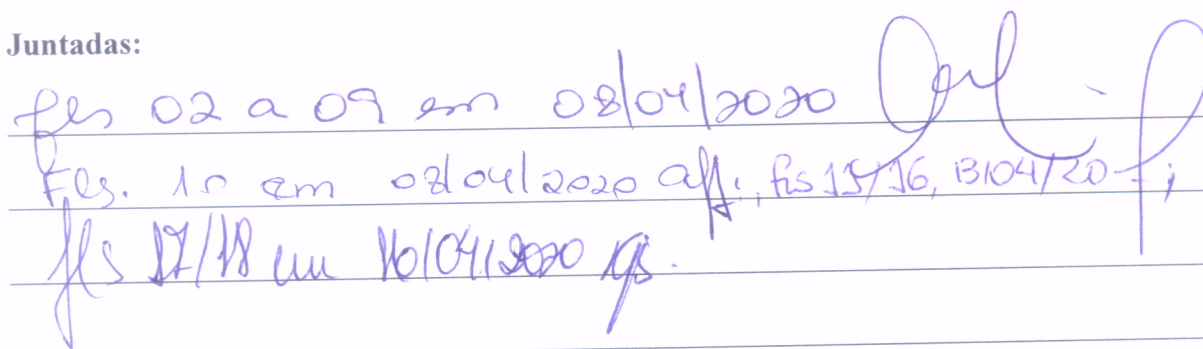 Juntadas:
fls 02 a 09 em 08/04/2020
Fls. 10 em 08/04/2020 fls 15/16, 13/04/20
fls 17/18 em 16/04/2020